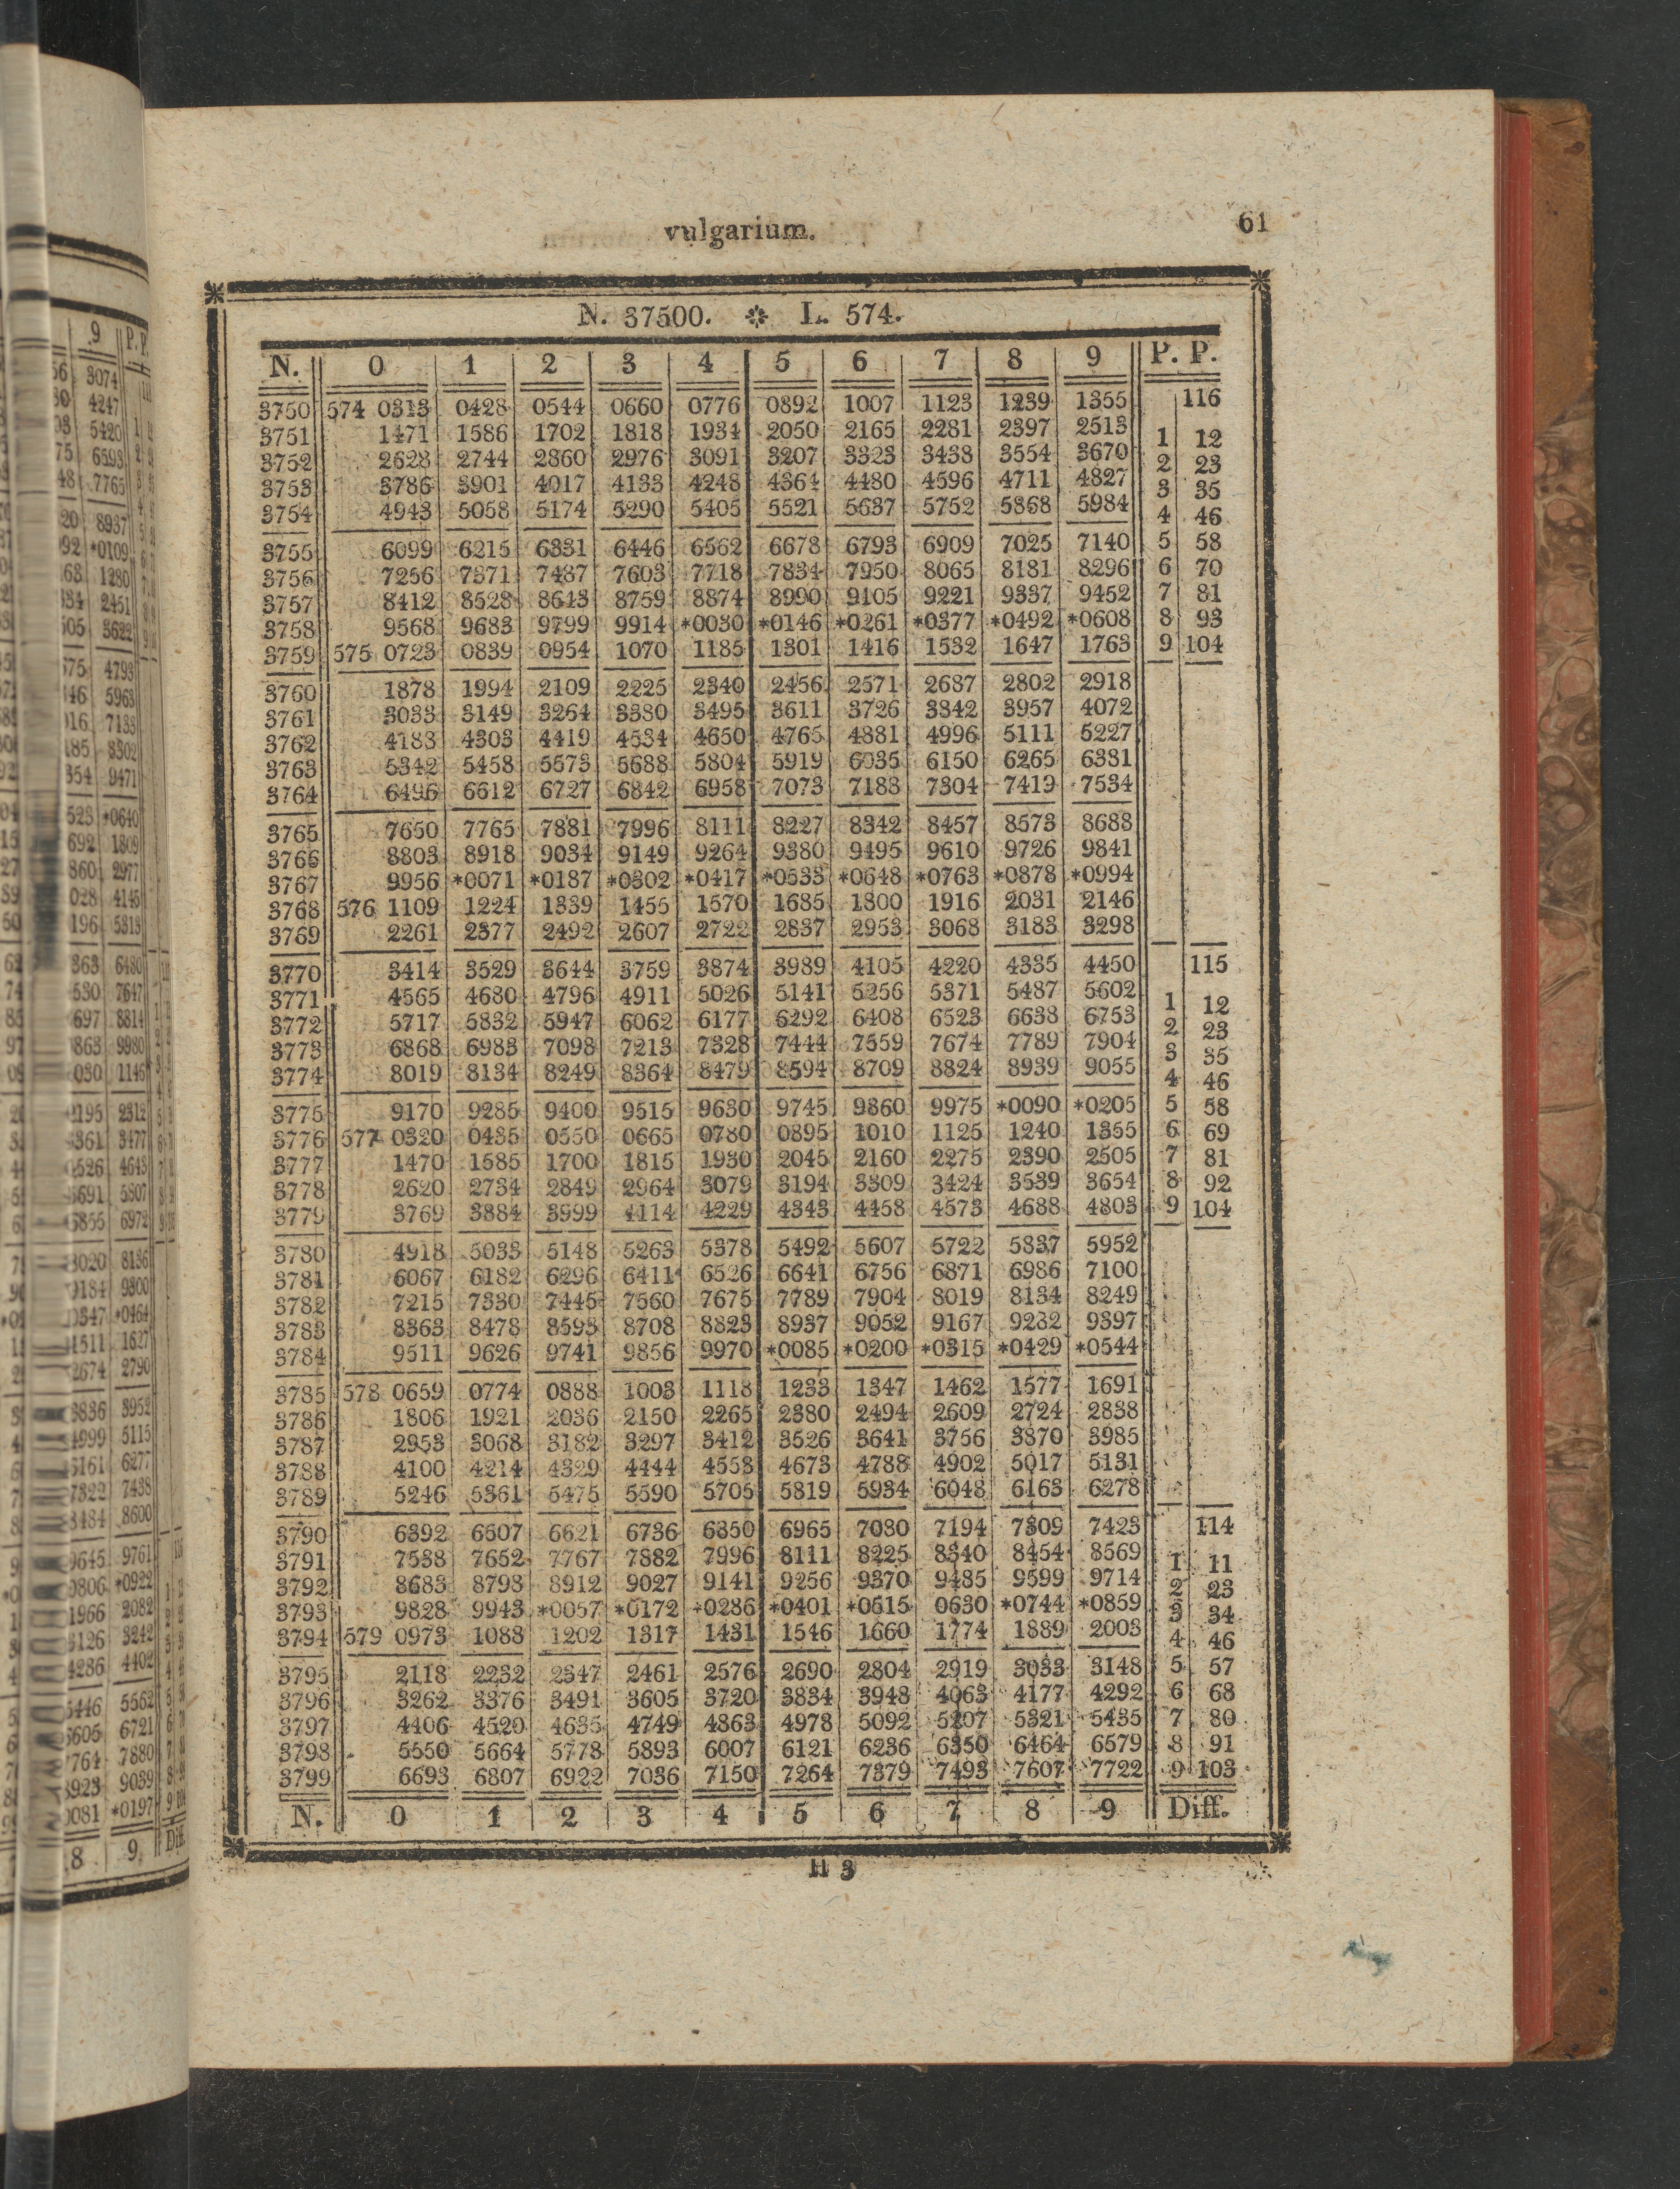 vulgarium. 61
N. 37500. ※ L. 574.
N. 0 1 2 3 4 5 6 7 8 9 P. P.
3750 574 0313 0428 0544 0660 0776 0892 1007 1123 1239 1355 116
3751 1471 1586 1702 1818 1934 2050 2165 2281 2397 2513 1 12
3752 2628 2744 2860 2976 3091 3207 3323 3438 3554 3670 2 23
3753 3786 3901 4017 4133 4248 4364 4480 4596 4711 4827 3 35
3754 4943 5058 5174 5290 5405 5521 5637 5752 5868 5984 4 46
3755 6099 6215 6331 6446 6562 6678 6793 6909 7025 7140 5 58
3756 7256 7371 7487 7603 7718 7834 7950 8065 8181 8296 6 70
3757 8412 8528 8643 8759 8874 8990 9105 9221 9337 9452 7 81
3758 9568 9683 9799 9914 *0030 *0146 *0261 *0377 *0492 *0608 8 93
3759 575 0723 0839 0954 1070 1185 1301 1416 1532 1647 1763 9 104
3760 1878 1994 2109 2225 2340 2456 2571 2687 2802 2918
3761 3033 3149 3264 3380 3495 3611 3726 3842 3957 4072
3762 4188 4303 4419 4534 4650 4765 4881 4996 5111 5227
3763 5342 5458 5573 5688 5804 5919 6035 6150 6265 6381
3764 6496 6612 6727 6842 6958 7073 7188 7304 7419 7534
3765 7650 7765 7881 7996 8111 8227 8342 8457 8573 8688
3766 8803 8918 9034 9149 9264 9380 9495 9610 9726 9841
3767 9956 *0071 *0187 *0302 *0417 *0533 *0648 *0763 *0878 *0994
3768 576 1109 1224 1339 1455 1570 1685 1800 1916 2031 2146
3769 2261 2377 2492 2607 2722 2837 2953 3068 3183 3298
3770 3414 3529 3644 3759 3874 3989 4105 4220 4335 4450 115
3771 4565 4680 4796 4911 5026 5141 5256 5371 5487 5602 1 12
3772 5717 5832 5947 6062 6177 6292 6408 6523 6638 6753 2 23
3773 6868 6983 7098 7213 7328 7444 7559 7674 7789 7904 3 35
3774 8019 8134 8249 8364 8479 8594 8709 8824 8939 9055 4 46
3775 9170 9285 9400 9515 9630 9745 9860 9975 *0090 *0205 5 58
3776 577 0320 0435 0550 0665 0780 0895 1010 1125 1240 1355 6 69
3777 1470 1585 1700 1815 1930 2045 2160 2275 2390 2505 7 81
3778 2620 2734 2849 2964 3079 3194 3309 3424 3539 3654 8 92
3779 3769 3884 3999 4114 4229 4343 4458 4573 4688 4803 9 104
3780 4918 5033 5148 5263 5378 5492 5607 5722 5837 5952
3781 6067 6182 6296 6411 6526 6641 6756 6871 6986 7100
3782 7215 7330 7445 7560 7675 7789 7904 8019 8134 8249
3783 8363 8478 8593 8708 8823 8937 9052 9167 9282 9397
3784 9511 9626 9741 9856 9970 *0085 *0200 *0315 *0429 *0544
3785 578 0659 0774 0888 1003 1118 1233 1347 1462 1577 1691
3786 1806 1921 2036 2150 2265 2380 2494 2609 2724 2838
3787 2953 3068 3182 3297 3412 3526 3641 3756 3870 3985
3788 4100 4214 4329 4444 4558 4673 4788 4902 5017 5131
3789 5246 5361 5475 5590 5705 5819 5934 6048 6163 6278
3790 6392 6507 6621 6736 6850 6965 7080 7194 7309 7423 114
3791 7538 7652 7767 7882 7996 8111 8225 8340 8454 8569 1 11
3792 8683 8798 8912 9027 9141 9256 9370 9485 9599 9714 2 23
3793 9828 9943 *0057 *0172 *0286 *0401 *0515 0630 *0744 *0859 3 34
3794 579 0973 1088 1202 1317 1431 1546 1660 1774 1889 2003 4 46
3795 2118 2232 2347 2461 2576 2690 2804 2919 3033 3148 5 57
3796 3262 3376 3491 3605 3720 3834 3948 4063 4177 4292 6 68
3797 4406 4520 4635 4749 4863 4978 5092 5207 5321 5435 7 80
3798 5550 5664 5778 5893 6007 6121 6236 6350 6464 6579 8 91
3799 6693 6807 6922 7036 7150 7264 7379 7493 7607 7722 9 103
N. 0 1 2 3 4 5 6 7 8 9 Diff.
H 3